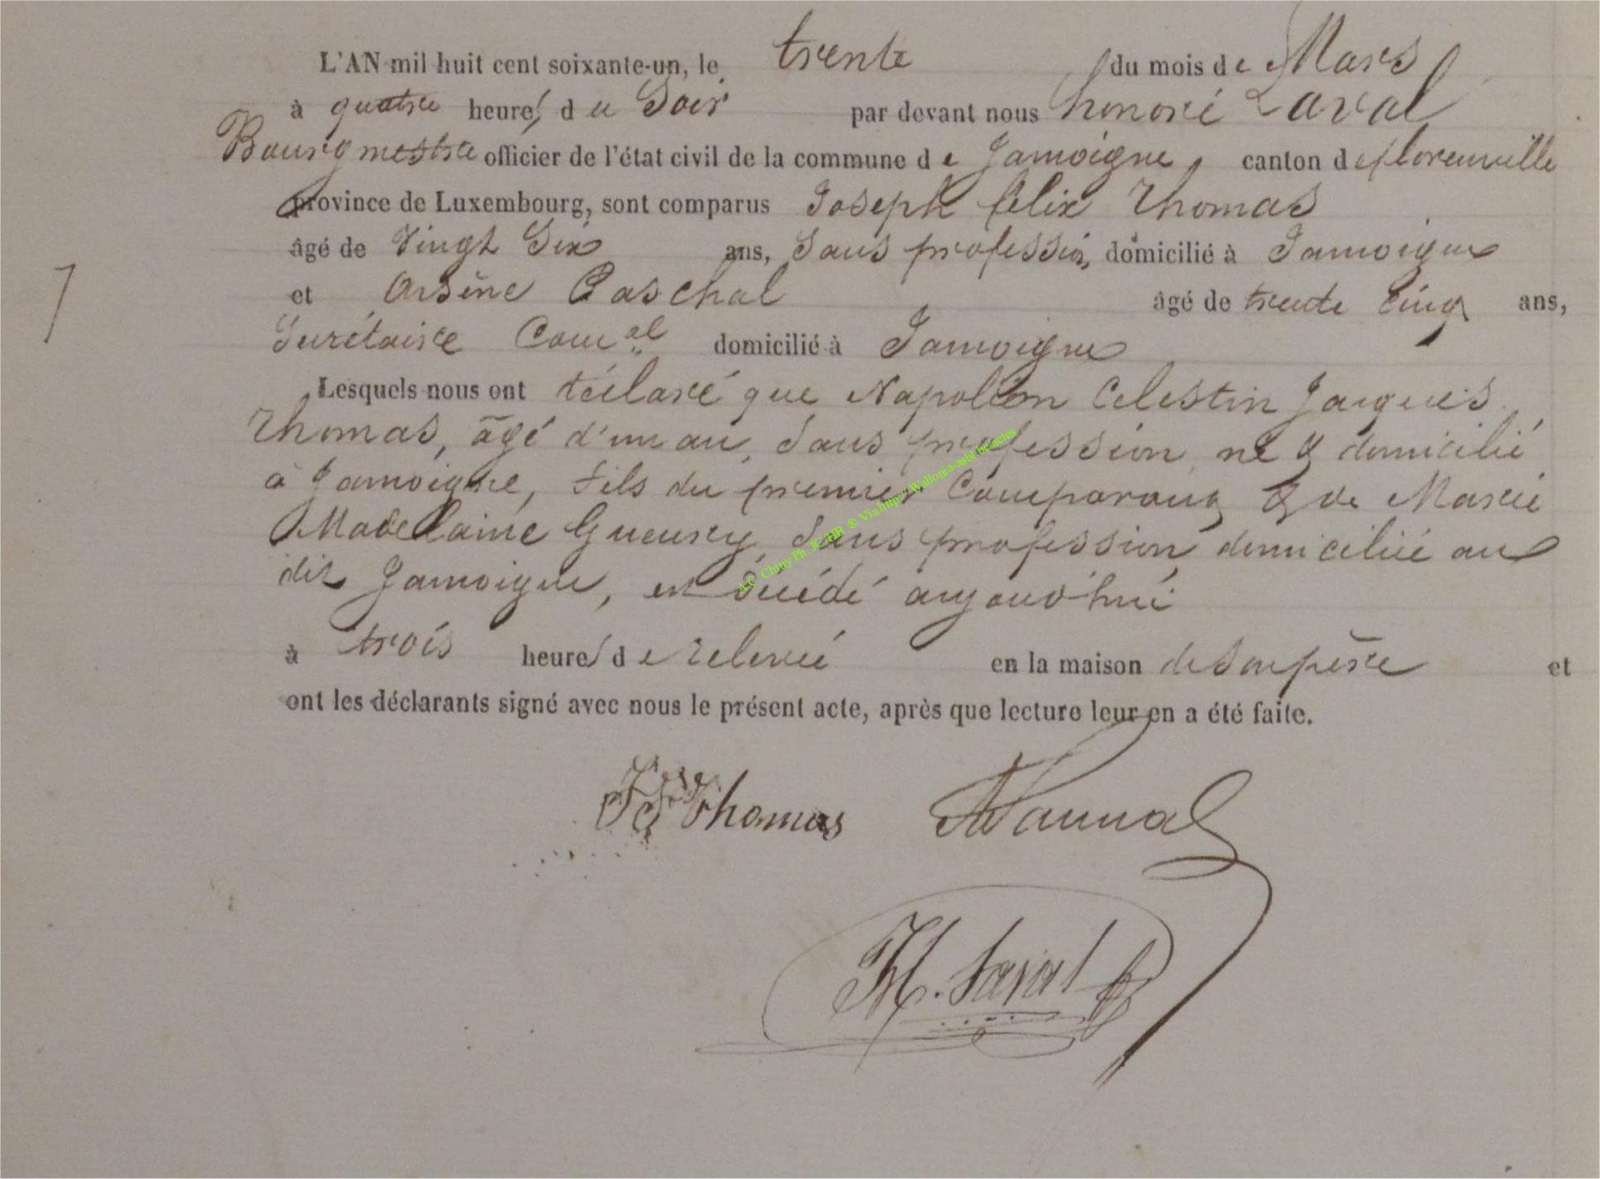 L'AN mil huit cent soixante-un, le trente du mois de Mars
à quatre heures du Soir par devant nous honoré Laval
Bourgmestre officier de l'état civil de la commune de Jamoigne, canton de florenville
province de Luxembourg, sont comparus Joseph félix Thomas
âgé de Vingt Six ans, Sans profession, domicilié à Jamoigne
et Arsène Paschal âgé de trente Cinq ans,
Secrétaire Comal domicilié à Jamoigne
7
Lesquels nous ont déclaré que Napoléon Celestin Jacques
Thomas, âgé d'un an, Sans profession, né & domicilié
à Jamoigne, fils du premier Comparant, & de Marie
Madelaine Gueury, Sans profession, domiciliée au
dit Jamoigne, est décédé aujourd'hui
à trois heures de relevée en la maison de Son père et
ont les déclarants signé avec nous le présent acte, après que lecture leur en a été faite.
Thomas
H. Laval